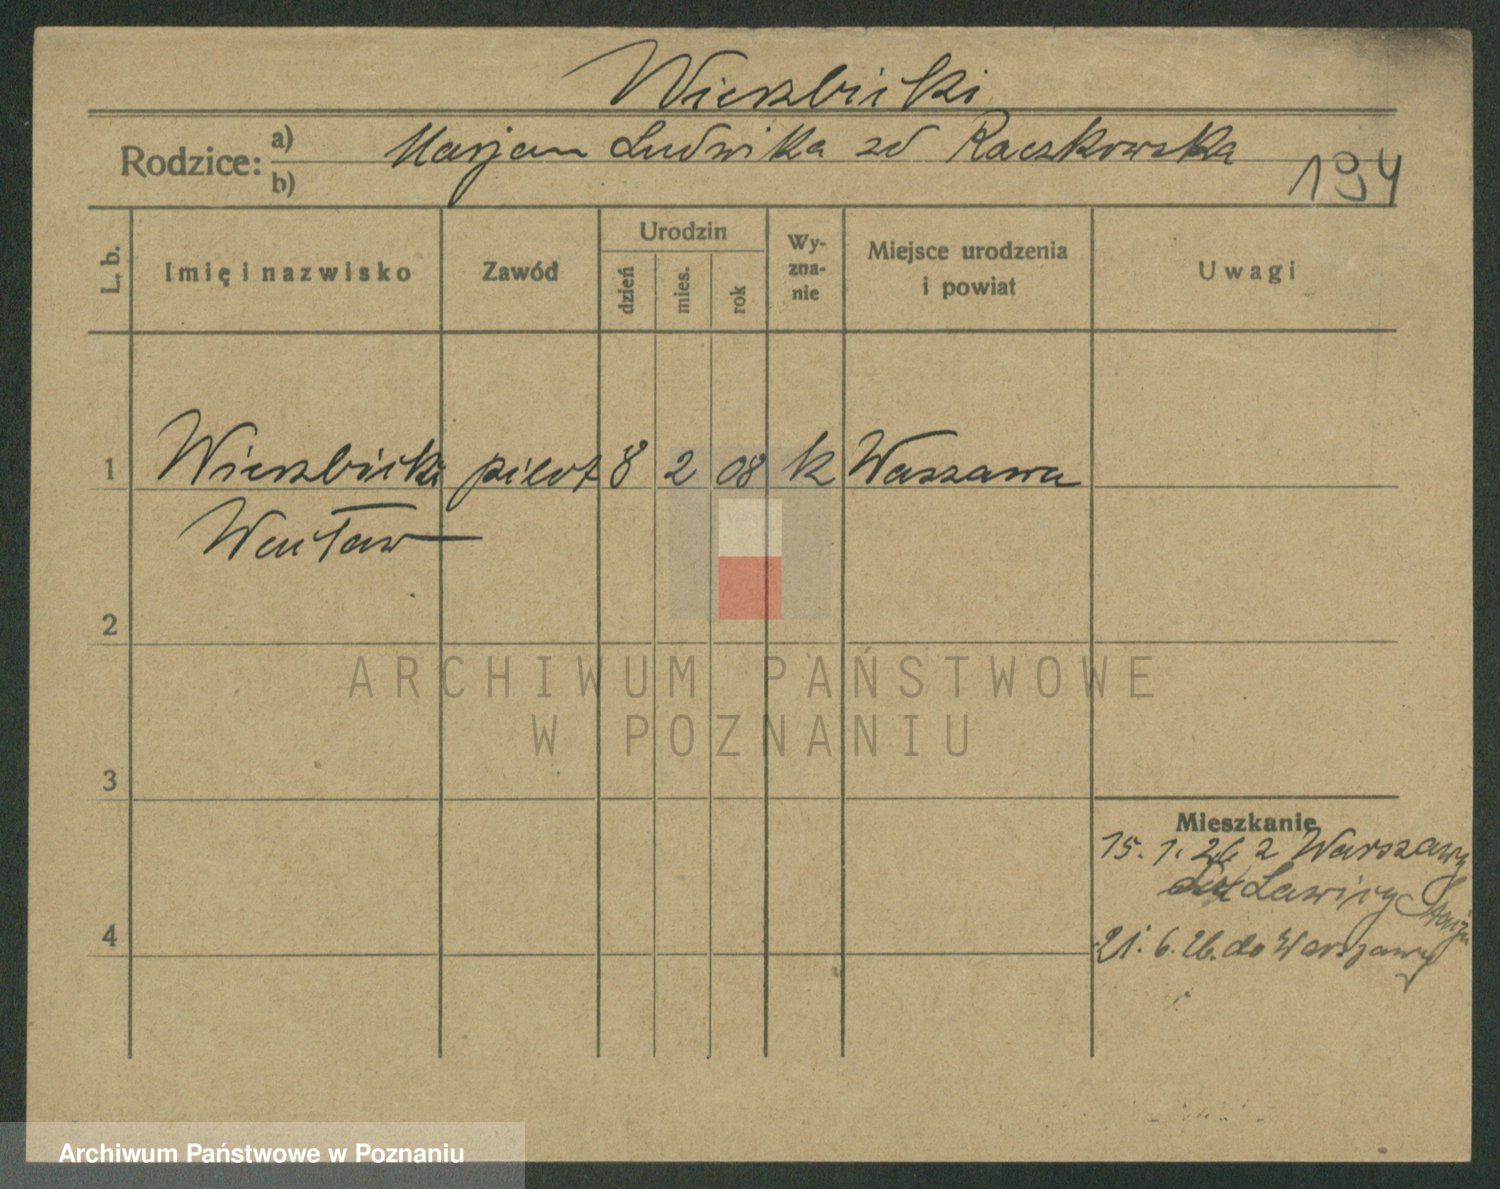 Wierzbicki
Rodzice: a)
b)
Marjan Ludwika zd Raczkowska
194
L. b.
Imię i nazwisko
Zawód
Urodzin
dzień
mies.
rok
Wy-
zna-
nie
Miejsce urodzenia
i powiat
Uwagi
1 Wierzbicki pilot 8 2 08 k Warszawa
Wacław
2
ARCHIWUM PAŃSTWOWE
W POZNANIU
3
Mieszkanie
15. 1. 26 z Warszawy
Ławicy
4
21. 6. 26. do Warszawy
Archiwum Państwowe w Poznaniu